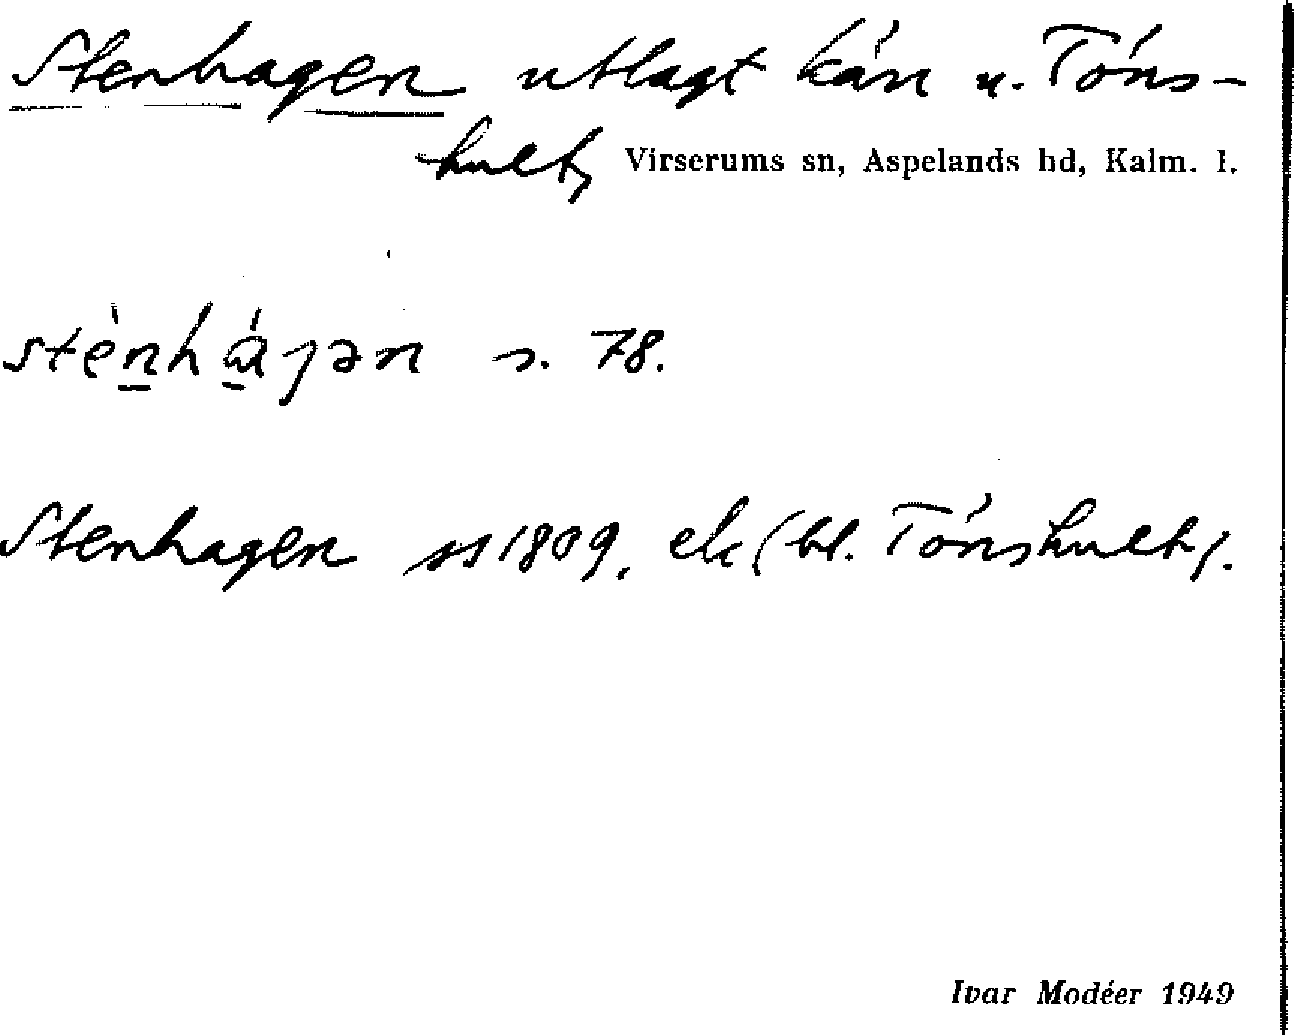 Stenhagen utlagt tán u. Töns-
hult, Virserums sn, Aspelands hd, Kalm. l.
stènhágən s. 78.
Stenhagen ss 1809, ek (bl. Tönshult).
Ivar Modéer 1949